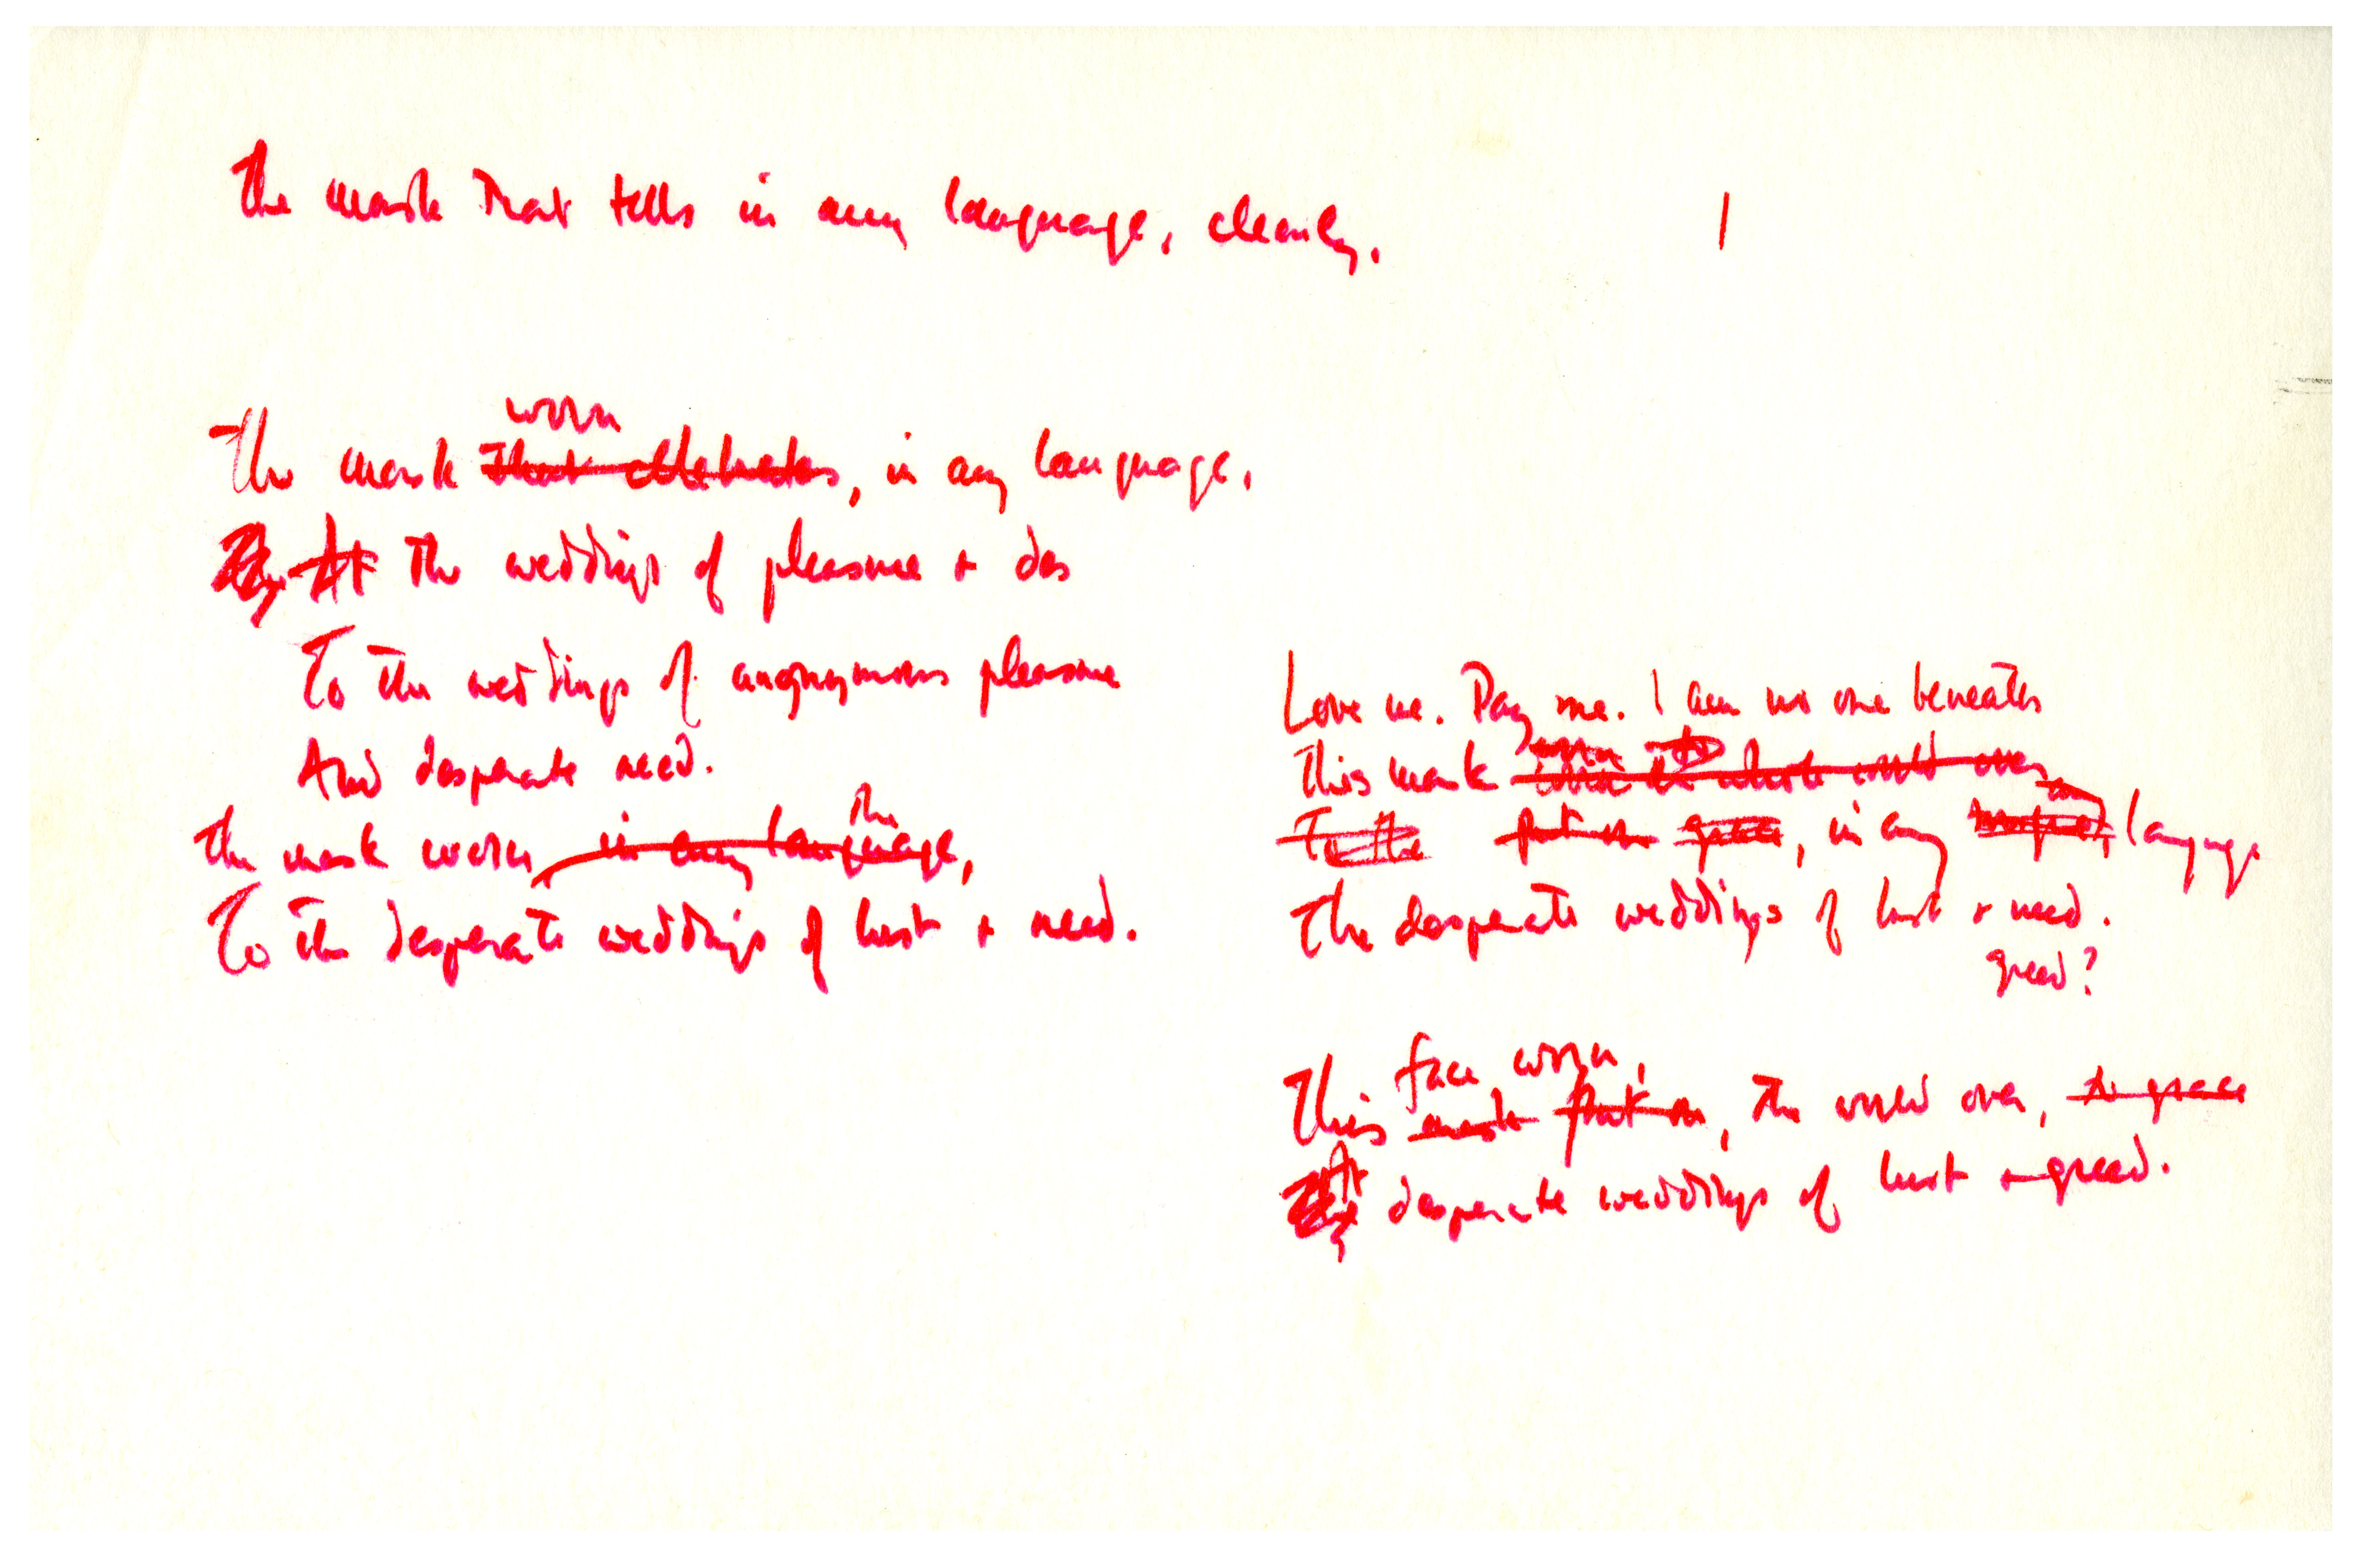 The mask that tells in any language, clearly,
I
worn
The mask that celebrates, in any language,
At the weddings of pleasure + des
To the weddings of anonymous pleasure
And desperate need.
the
The mask worn in any language,
To the desperate weddings of lust + need.
Love me. Pay me. I am no one beneath
This mask worn the whole world over
To the put on grace, in any language
The desperate weddings of lust + need.
greed?
face, worn,
This mask put on, the world over, to grace
At desperate weddings of lust + greed.